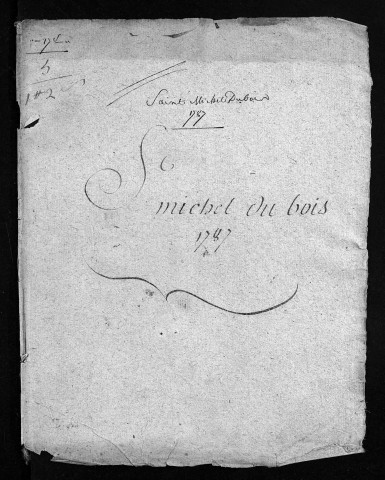 5
Saint Michel Dubois
1787
St
michel du bois
1787